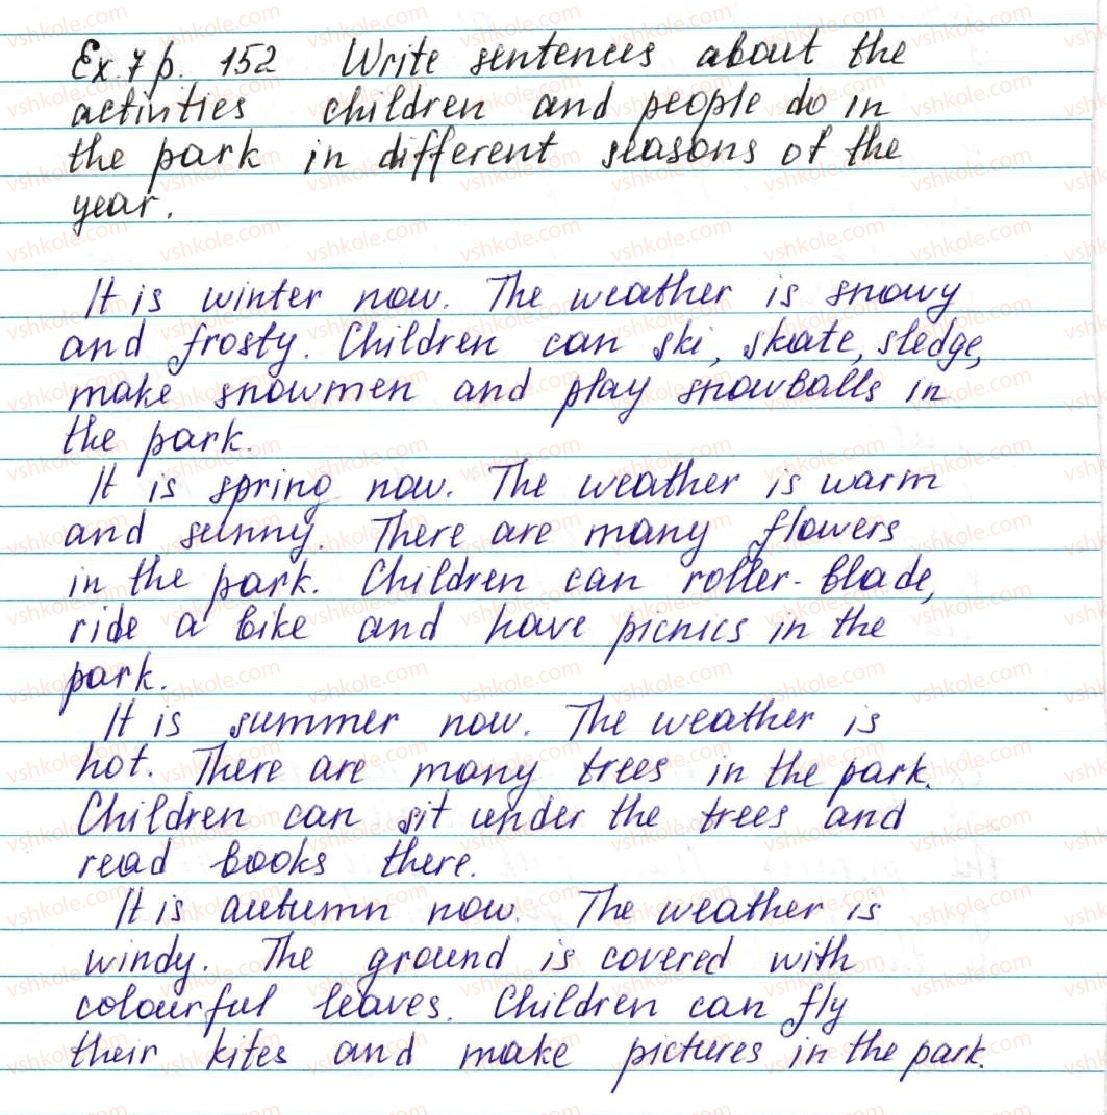 Ex. 7 p. 152 Write sentences about the
activities children and people do in
the park in different seasons of the
year.
It is winter now. The weather is snowy
and frosty. Children can ski, skate, sledge,
make snowmen and play snowballs in
the park.
It is spring now. The weather is warm
and sunny. There are many flowers
in the park. Children can roller-blade,
ride a bike and have picnics in the
park.
It is summer now. The weather is
hot. There are many trees in the park.
Children can sit under the trees and
read books there.
It is autumn now. The weather is
windy. The ground is covered with
colourful leaves. Children can fly
their kites and make pictures in the park.
vshkole.com